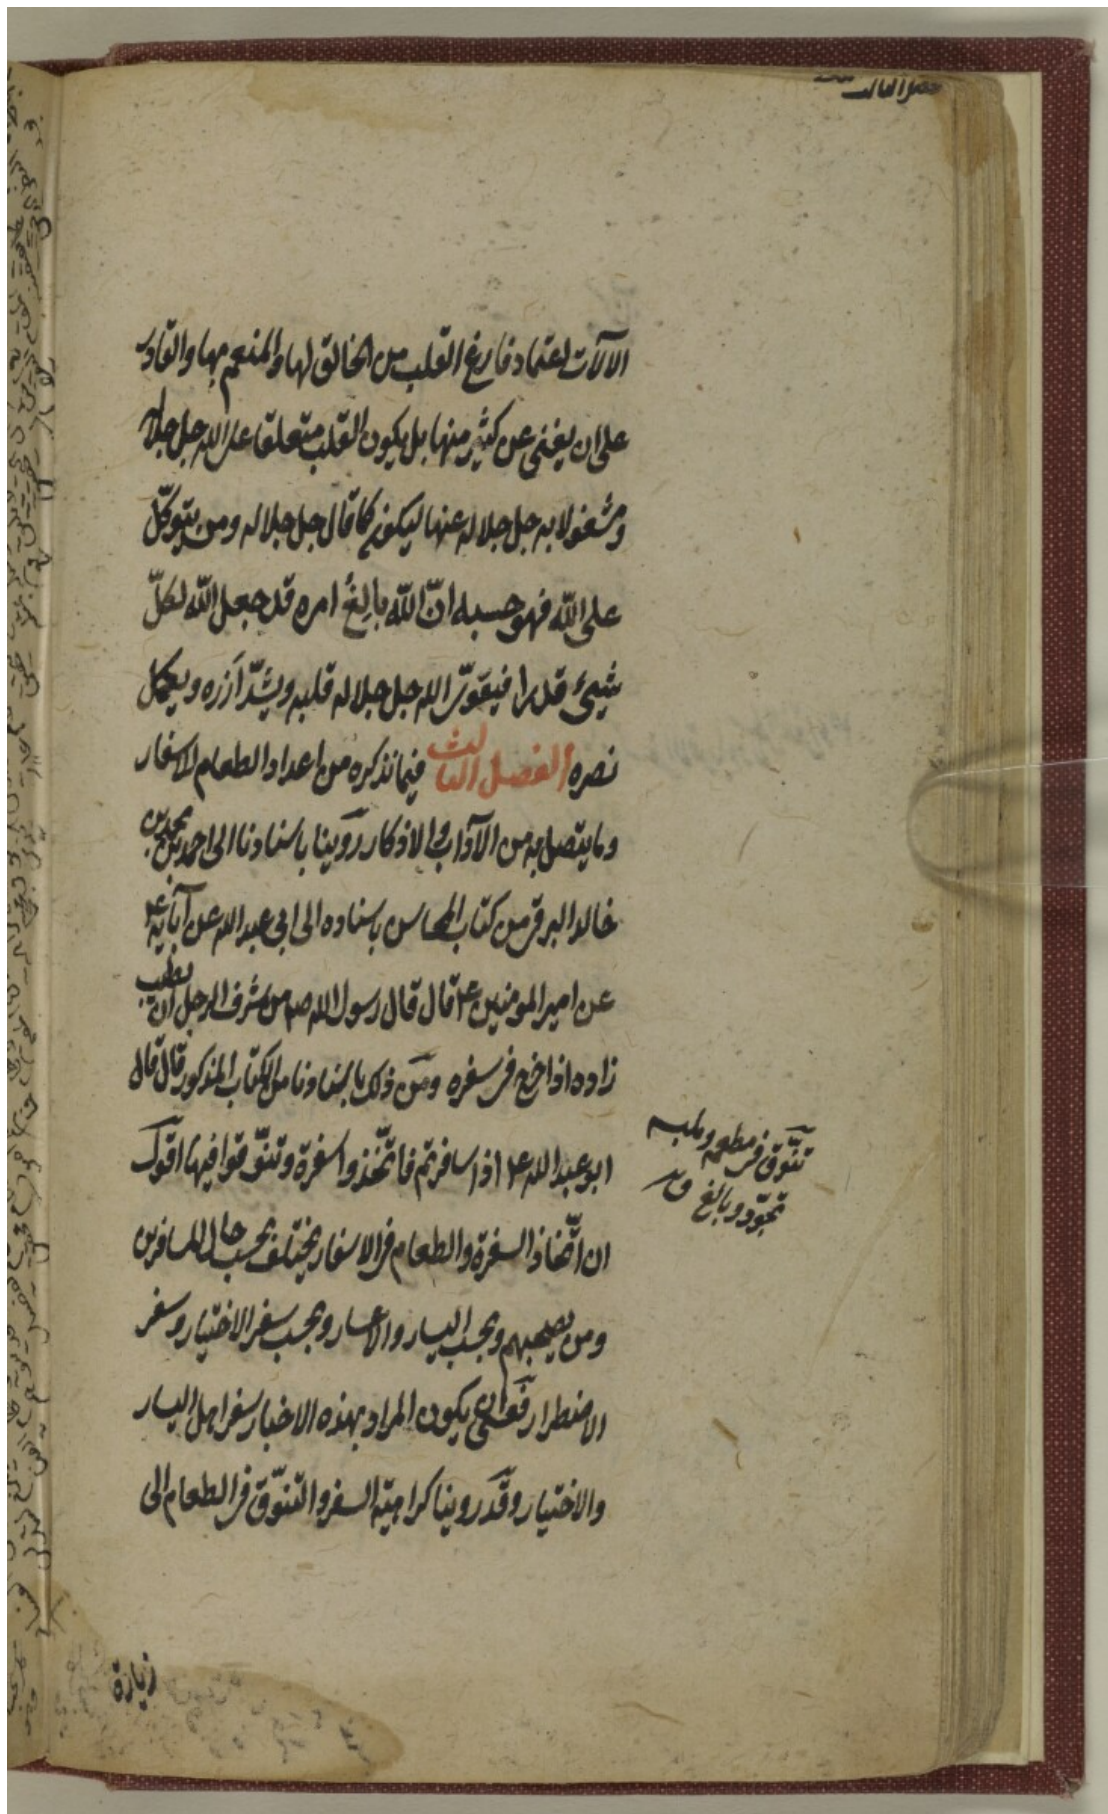 الآلات اعتماد فارغ القلب من الخالق لها والمنعم بها والقادر
على ان يغنى عن كثير منها بل يكون القلب متعلقا على الله جل جلاله
ومشغولا به جل جلاله عنها ليكون كما قال جل جلاله ومن يتوكّل
على الله فهو حسبه انّ الله بالغُ امره قد جعل الله لكلّ
شيئ قدرا فيقوّى الله جل جلاله قلبه ويشدّ ازره ويكمل
نصره الفصل الثالث فيما نذكره من اعداد الطعام للاسفار
وما يتصل به من الآداب والاذكار روينا باسنادنا الى احمد بن محمد بن
خالد البرقى من كتاب المحاسن باسناده الى ابى عبد الله عن آبائه ع
عن امير المومنين ع قال قال رسول الله ص من شرف الرجل ان يطيب
زاده اذا خرج فى سفره ومن ذلك باسنادنا من الكتاب المذكور قال قال
ابو عبد الله ع اذا سافرتم فاتّخذوا سفرة وتنوّقوا فيها اقول
ان اتّخاذ السفرة والطعام فى الاسفار يختلف بحسب حال المسافرين
ومن يصحبهم وبحسب اليسار والاعسار وبحسب سفر الاختيار وسفر
الاضطرار فعسى ان يكون المراد بهذه الاخبار سفر اهل اليسار
والاختيار وقد روينا كراهية السفر والتنوّق فى الطعام الى
تنوّق فى مطعمه وملبسه
تجوّد وبالغ ق
زيارة